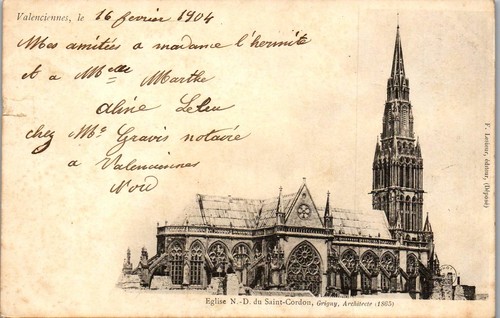 Valenciennes, le 16 fevrier 1904
Mes amitiés a madame l'hermite
et a Melle Marthe
aline Leleu
chez Me Gravis notaire
a Valenciennes
Nord
F. Lesieur, éditeur, (Déposé)
Eglise N.-D. du Saint-Cordon, Grigny, Architecte (1865)